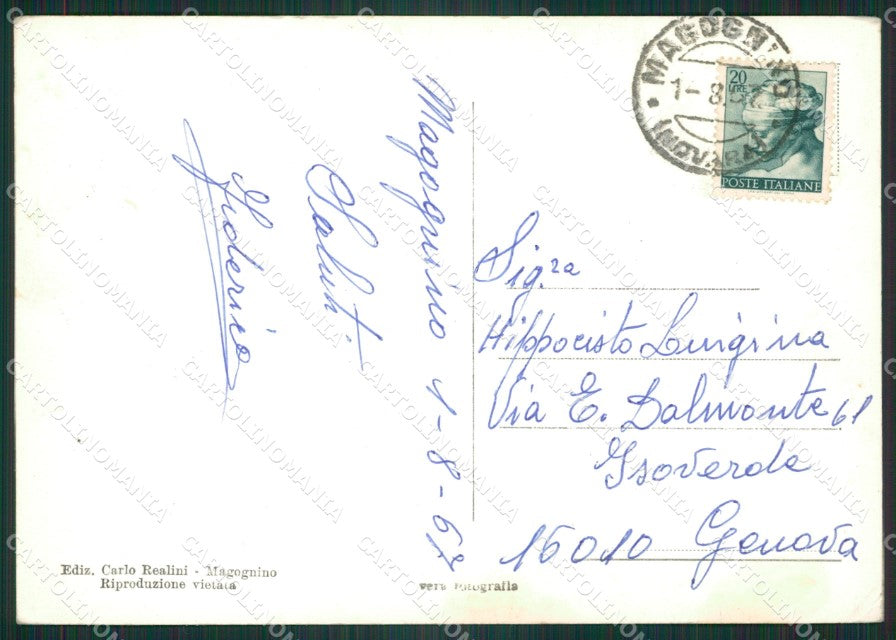 MAGOGNINO
1-8.67
(NOVARA)
20
LIRE
POSTE ITALIANE
Magognino 1-8-67
Saluti
Federico
Sig.ra
Hippocisto Luigina
Via E. Dalmonte 61
Isoverde
16010 Genova
Ediz. Carlo Realini - Magognino
Riproduzione vietata
vera fotografia
CARTOLINOMANIA